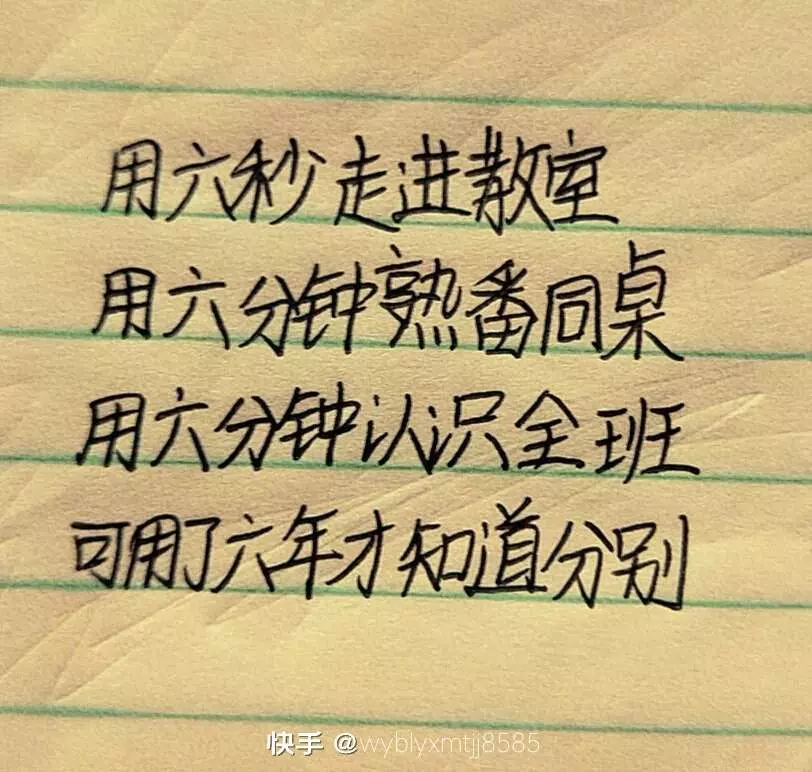 用六秒走进教室
用六分钟熟番同桌
用六分钟认识全班
可用了六年才知道分别
快手 @wyblyxmtjj8585